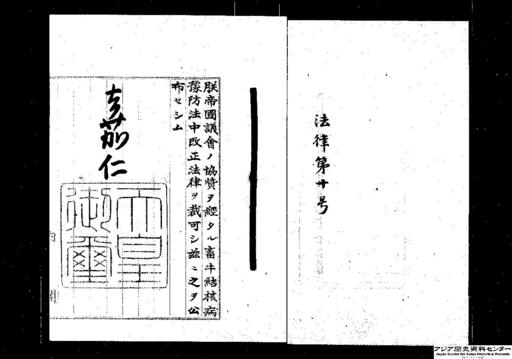 法律第十号
朕帝國議會ノ協賛ヲ經タル畜牛結核病
豫防法中改正法律ヲ裁可シ茲ニ之ヲ公
布セシム
嘉仁
天皇
御璽
アジア歴史資料センター
Japan Center for Asian Historical Records